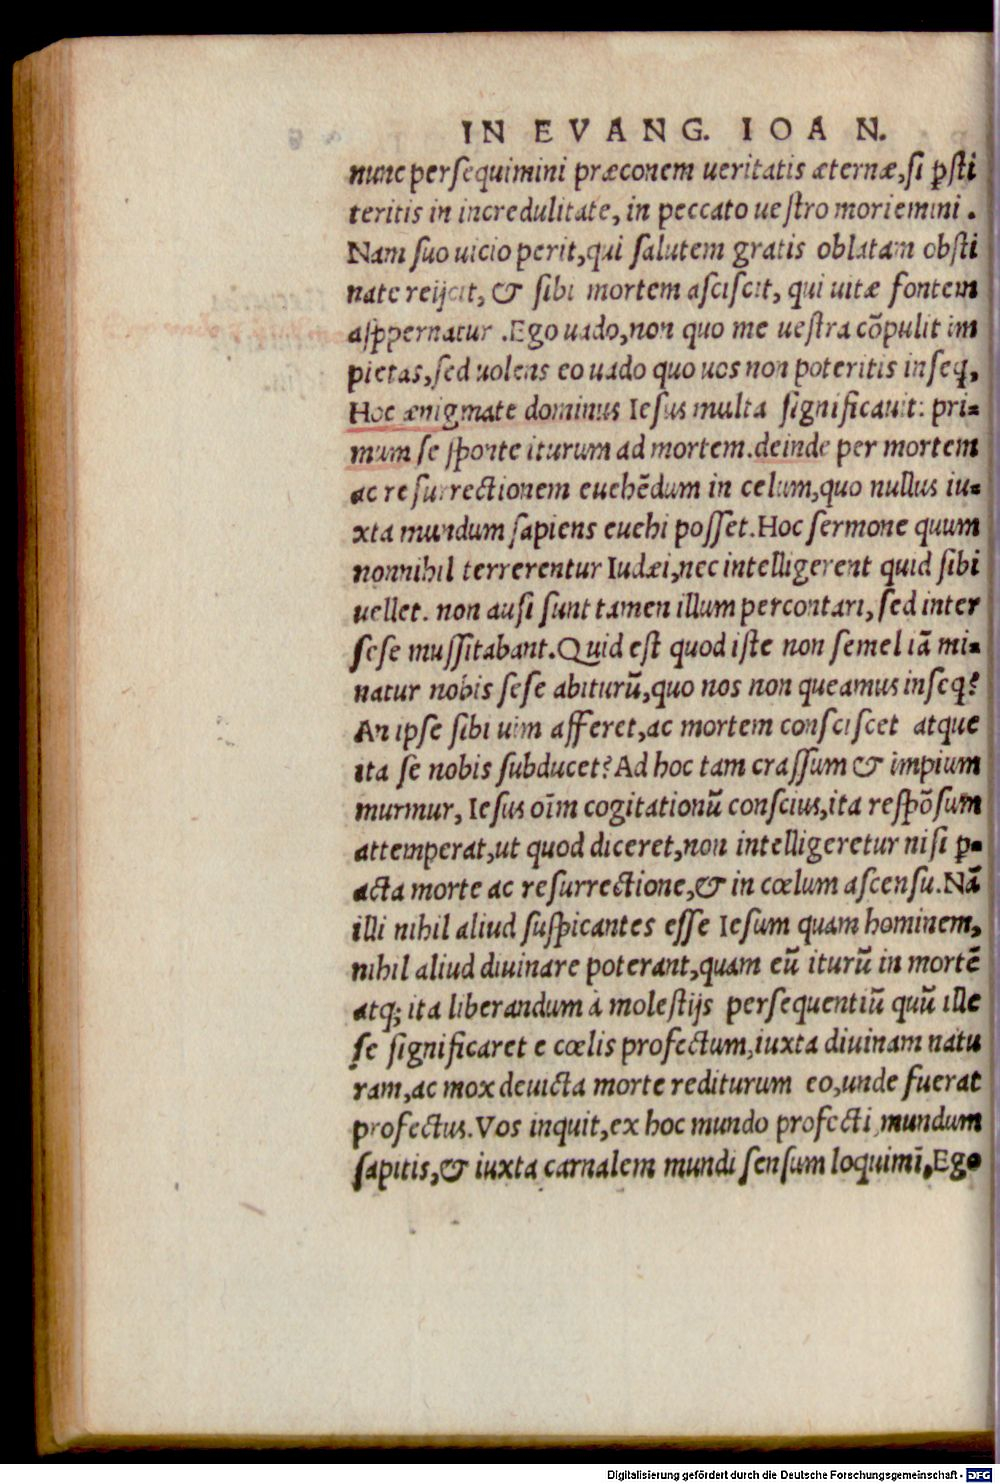 IN EVANG. IOAN.
nunc persequimini præconem ueritatis æternæ, si ꝑsti
teritis in incredulitate, in peccato uestro moriemini.
Nam suo uicio perit, qui salutem gratis oblatam obsti
nate reijcit, & sibi mortem asciscit, qui uitæ fontem
asꝑpernatur. Ego uado, non quo me uestra cõpulit im
pietas, sed uolens eo uado quo uos non poteritis inseq,
Hoc ænigmate dominus Iesus multa significauit: pri-
mum se sponte iturum ad mortem. deinde per mortem
ac resurrectionem euehẽdum in celum, quo nullus iu-
xta mundum sapiens euehi posset. Hoc sermone quum
nonnihil terrerentur Iudæi, nec intelligerent quid sibi
uellet. non ausi sunt tamen illum percontari, sed inter
sese mussitabant. Quid est quod iste non semel iã mi-
natur nobis sese abiturũ, quo nos non queamus inseq?
An ipse sibi uim afferet, ac mortem consciscet atque
ita se nobis subducet? Ad hoc tam crassum & impium
murmur, Iesus oĩm cogitationũ conscius, ita respõsum
attemperat, ut quod diceret, non intelligeretur nisi ꝑ-
acta morte ac resurrectione, & in cœlum ascensu. Nã
illi nihil aliud suspicantes esse Iesum quam hominem,
nihil aliud diuinare poterant, quam eũ iturũ in mortẽ
atq; ita liberandum à molestijs persequentiũ quũ ille
se significaret e cœlis profectum, iuxta diuinam natu
ram, ac mox deuicta morte rediturum eo, unde fuerat
profectus. Vos inquit, ex hoc mundo profecti, mundum
sapitis, & iuxta carnalem mundi sensum loquimĩ, Ego
Digitalisierung gefördert durch die Deutsche Forschungsgemeinschaft - DFG